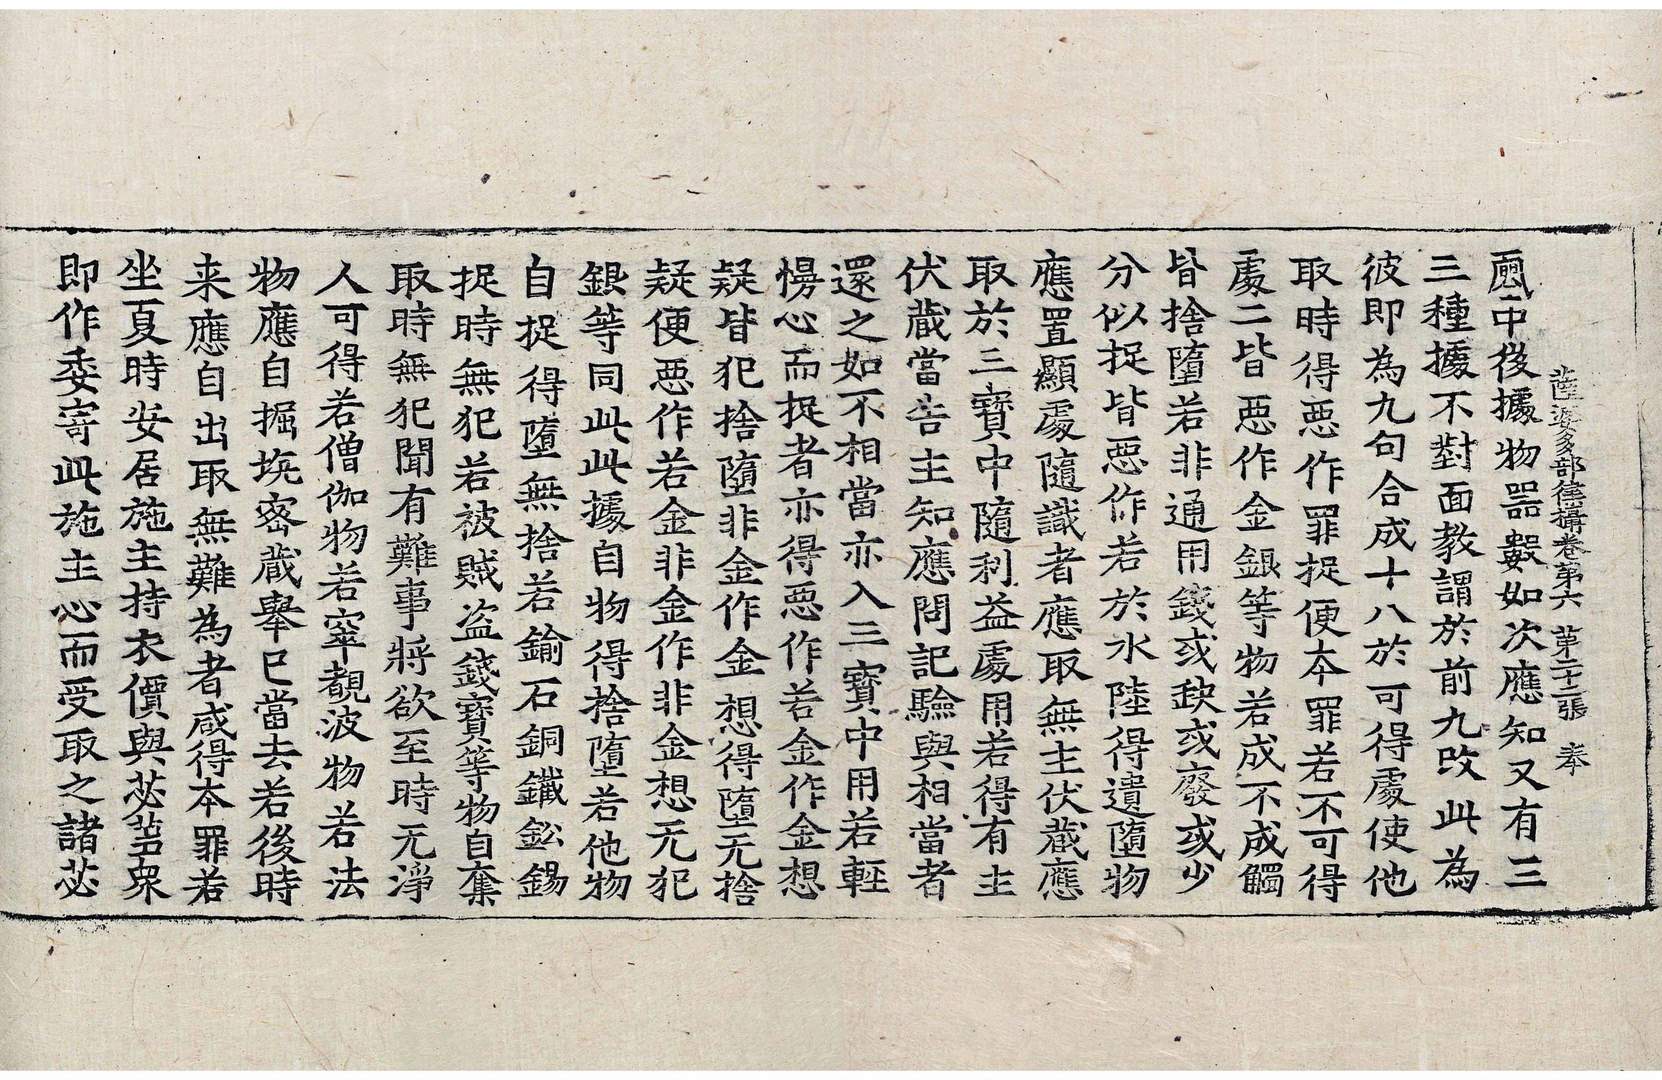 薩婆多部律攝卷第六 第二十二張 奉
中後據物器數如次應知又有三
三種據不對面教謂於前九改此為
彼即為九句合成十八於可得處使他
取時得惡作罪捉便本罪若不可得
處二皆惡作金銀等物若成不成觸
皆捨墮若非通用錢或缺或廢或少
分似捉皆惡作若於水陸得遺墮物
應置顯處隨識者應取無主伏藏應
取於三寶中隨利益處用若得有主
伏藏當告主知應問記驗與相當者
還之如不相當亦入三寶中用若輕
慢心而捉者亦得惡作若金作金想
疑皆犯捨墮非金作金想得墮无捨
疑便惡作若金非金作非金想无犯
銀等同此此據自物得捨墮若他物
自捉得墮無捨若鍮石銅鐵鈆錫
捉時無犯若被賊盜錢寶等物自奪
取時無犯聞有難事將欲至時无淨
人可得若僧伽物若窣覩波物若法
物應自掘坑密藏舉已當去若後時
来應自出取無難為者咸得本罪若
坐夏時安居施主持衣價與苾芻眾
即作委寄此施主心而受取之諸苾